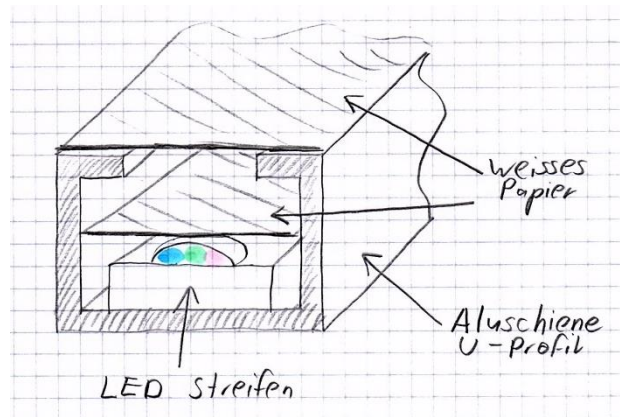 weisses
Papier
Aluschiene
U-Profil
LED Streifen